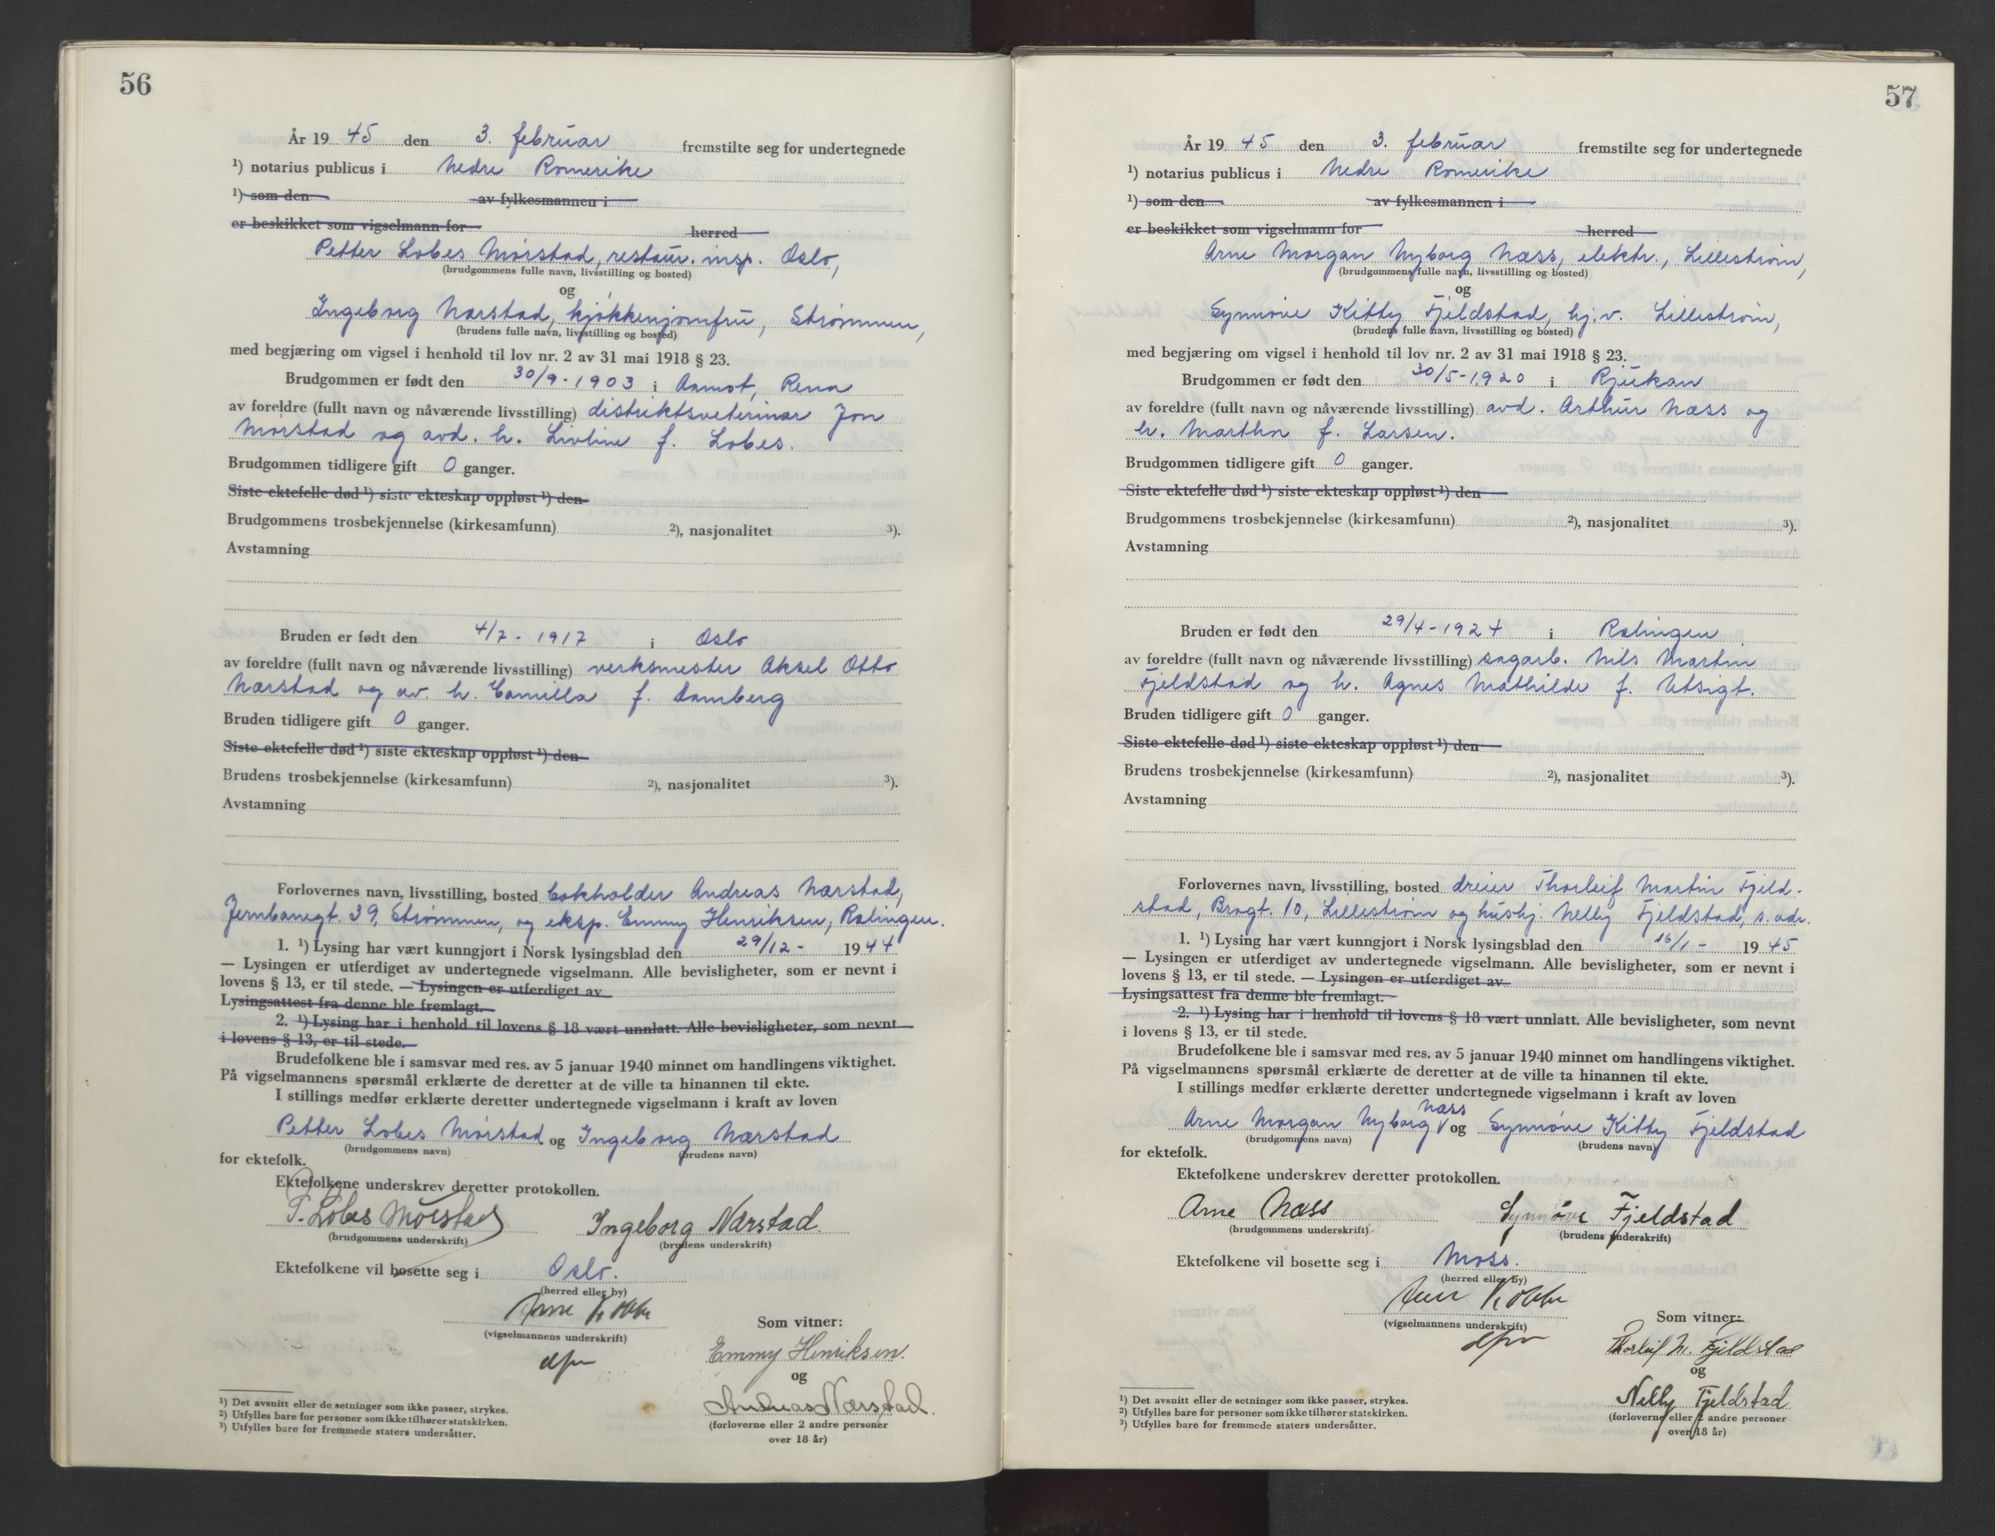 56
År 19 45 den 3. februar fremstilte seg for undertegnede
¹) notarius publicus i Nedre Romerike
¹) som den av fylkesmannen i
er beskikket som vigselmann for herred
Petter Lobes Mørstad, restaur. insp. Oslo,
(brudgommens fulle navn, livsstilling og bosted)
og
Ingeborg Nærstad, kjøkkenjomfru, Strømmen,
(brudens fulle navn, livsstilling og bosted)
med begjæring om vigsel i henhold til lov nr. 2 av 31 mai 1918 § 23.
Brudgommen er født den 30/9-1903 i Aamot, Rena
av foreldre (fullt navn og nåværende livsstilling) distriktsveterinær Jon
Mørstad og avd. h. Livline f. Lobes.
Brudgommen tidligere gift 0 ganger.
Siste ektefelle død ¹) siste ekteskap oppløst ¹) den
Brudgommens trosbekjennelse (kirkesamfunn) ²), nasjonalitet ³).
Avstamning
Bruden er født den 4/7-1917 i Oslo
av foreldre (fullt navn og nåværende livsstilling) verksmester Aksel Otto
Nærstad og av. h. Camilla f. Damberg
Bruden tidligere gift 0 ganger.
Siste ektefelle død ¹) siste ekteskap oppløst ¹) den
Brudens trosbekjennelse (kirkesamfunn) ²), nasjonalitet ³).
Avstamning
Forlovernes navn, livsstilling, bosted Cokholder Andreas Nærstad,
Jernbanegt. 39, Strømmen, og eksp. Emmy Henriksen, Rælingen.
1. ¹) Lysing har vært kunngjort i Norsk lysingsblad den 29/12- 1944
— Lysingen er utferdiget av undertegnede vigselmann. Alle bevisligheter, som er nevnt i
lovens § 13, er til stede. — Lysingen er utferdiget av
Lysingsattest fra denne ble fremlagt.
2. ¹) Lysing har i henhold til lovens § 18 vært unnlatt. Alle bevisligheter, som nevnt
i lovens § 13, er til stede.
Brudefolkene ble i samsvar med res. av 5 januar 1940 minnet om handlingens viktighet.
På vigselmannens spørsmål erklærte de deretter at de ville ta hinannen til ekte.
I stillings medfør erklærte deretter undertegnede vigselmann i kraft av loven
Petter Lobes Mørstad og Ingeborg Nærstad
(brudgommens navn) (brudens navn)
for ektefolk.
Ektefolkene underskrev deretter protokollen.
P. Lobes Mørstad Ingeborg Nærstad.
(brudgommens underskrift) (brudens underskrift)
Ektefolkene vil bosette seg i Oslo.
(herred eller by)
Arne Kobbe
(vigselmannens underskrift)
dfm
Som vitner:
Emmy Henriksen.
og
Andreas Nærstad.
(forloverne eller 2 andre personer
over 18 år)
¹) Det avsnitt eller de setninger som ikke passer, strykes.
²) Utfylles bare for personer som ikke tilhører statskirken.
³) Utfylles bare for fremmede staters undersåtter.
57
År 19 45 den 3. februar fremstilte seg for undertegnede
¹) notarius publicus i Nedre Romerike
¹) som den av fylkesmannen i
er beskikket som vigselmann for herred
Arne Morgan Nyborg Næss, elektr., Lillestrøm,
(brudgommens fulle navn, livsstilling og bosted)
og
Synnøve Kitty Fjeldstad, hj.v. Lillestrøm,
(brudens fulle navn, livsstilling og bosted)
med begjæring om vigsel i henhold til lov nr. 2 av 31 mai 1918 § 23.
Brudgommen er født den 30/5-1920 i Rjukan
av foreldre (fullt navn og nåværende livsstilling) avd. Arthur Næss og
h. Martha f. Larsen.
Brudgommen tidligere gift 0 ganger.
Siste ektefelle død ¹) siste ekteskap oppløst ¹) den
Brudgommens trosbekjennelse (kirkesamfunn) ²), nasjonalitet ³).
Avstamning
Bruden er født den 29/4-1924 i Rælingen
av foreldre (fullt navn og nåværende livsstilling) sagarb. Nils Martin
Fjeldstad og h. Agnes Mathilde f. Utsigt.
Bruden tidligere gift 0 ganger.
Siste ektefelle død ¹) siste ekteskap oppløst ¹) den
Brudens trosbekjennelse (kirkesamfunn) ²), nasjonalitet ³).
Avstamning
Forlovernes navn, livsstilling, bosted dreier Thorleif Martin Fjeld-
stad, Bragt. 10, Lillestrøm og hushj. Nelly Fjeldstad, s. adr.
1. ¹) Lysing har vært kunngjort i Norsk lysingsblad den 16/1- 1945
— Lysingen er utferdiget av undertegnede vigselmann. Alle bevisligheter, som er nevnt i
lovens § 13, er til stede. — Lysingen er utferdiget av
Lysingsattest fra denne ble fremlagt.
2. ¹) Lysing har i henhold til lovens § 18 vært unnlatt. Alle bevisligheter, som nevnt
i lovens § 13, er til stede.
Brudefolkene ble i samsvar med res. av 5 januar 1940 minnet om handlingens viktighet.
På vigselmannens spørsmål erklærte de deretter at de ville ta hinannen til ekte.
I stillings medfør erklærte deretter undertegnede vigselmann i kraft av loven
Arne Morgan Nyborg Næss og Synnøve Kitty Fjeldstad
(brudgommens navn) (brudens navn)
for ektefolk.
Ektefolkene underskrev deretter protokollen.
Arne Næss Synnøve Fjeldstad
(brudgommens underskrift) (brudens underskrift)
Ektefolkene vil bosette seg i Moss.
(herred eller by)
Arne Kobbe
(vigselmannens underskrift)
dfm
Som vitner:
Thorleif M. Fjeldstad
og
Nelly Fjeldstad
(forloverne eller 2 andre personer
over 18 år)
¹) Det avsnitt eller de setninger som ikke passer, strykes.
²) Utfylles bare for personer som ikke tilhører statskirken.
³) Utfylles bare for fremmede staters undersåtter.